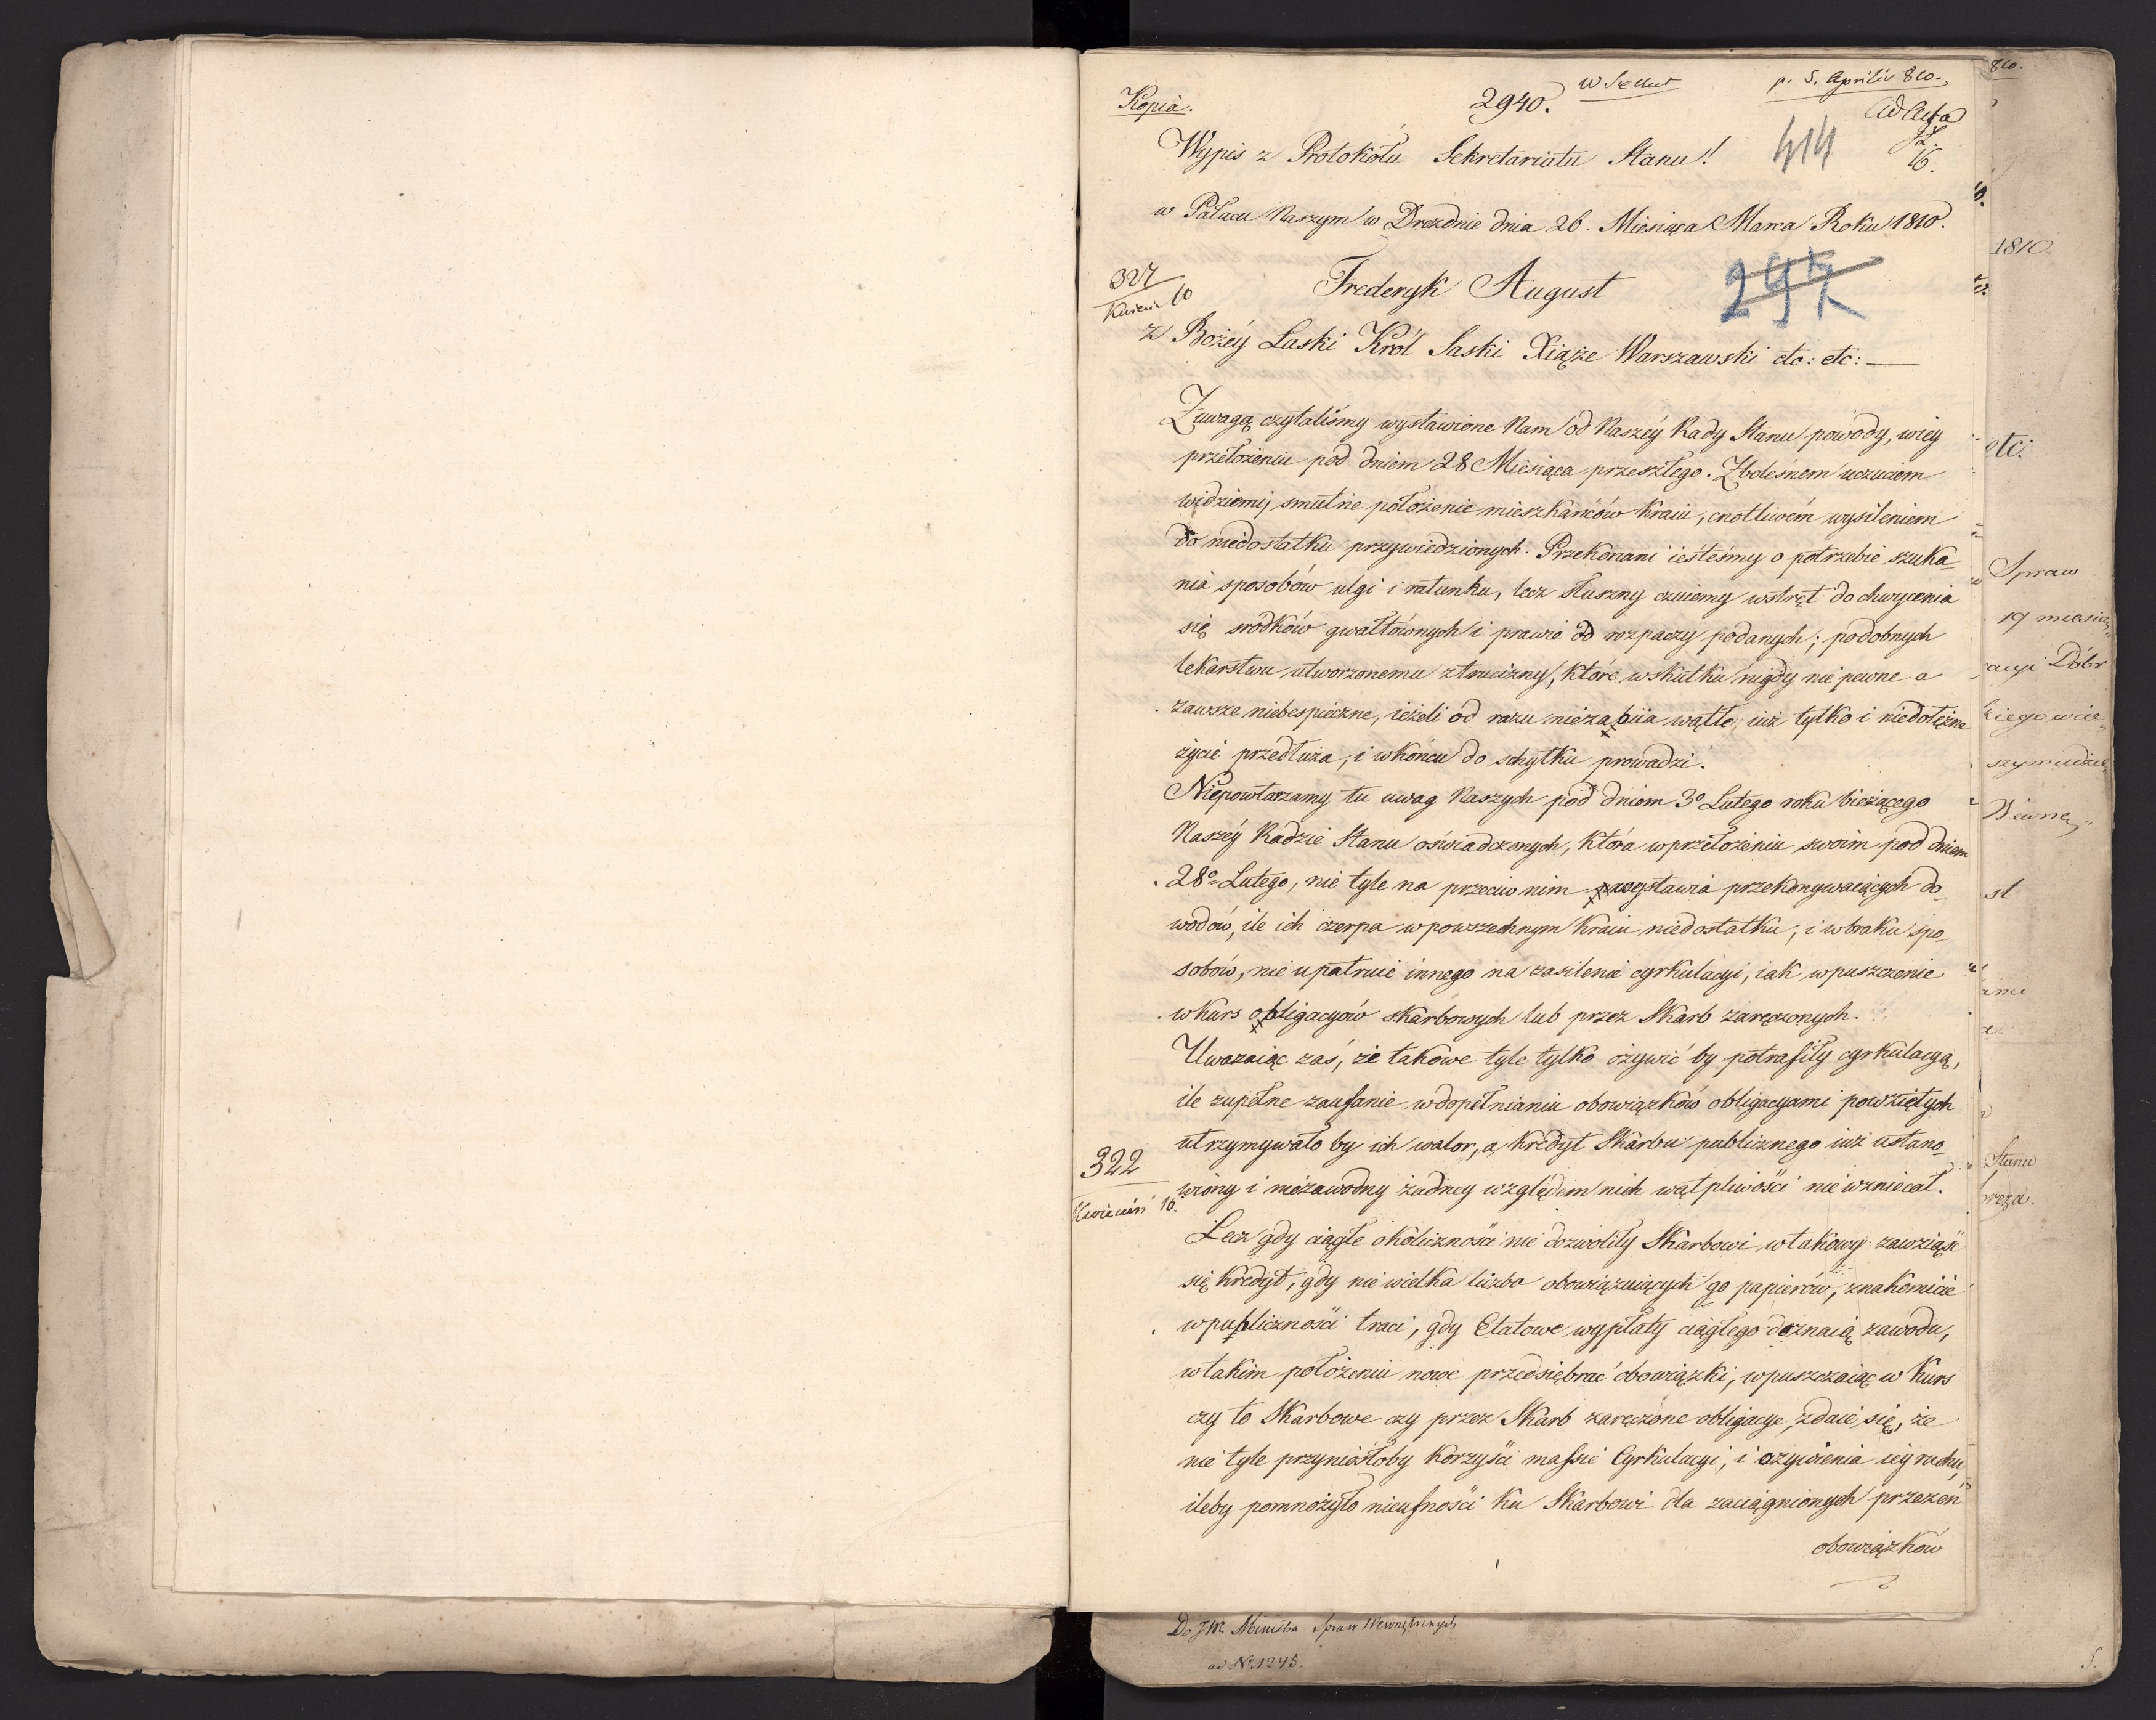 Kopia.
2940.
p. 5. Aprilis 810.
Ad Acta
16.
414
Wypis z Protokołu Sekretariatu Stanu!
w Pałacu Naszym w Dreźdnie dnia 26. Miesiąca Marca Roku 1810.
327
Kwiecie 10
Frederyk August
247
z Bożéy Łaski Król Saski Xiąże Warszawski etc: etc:
Z uwagą czytaliśmy wystawione Nam od Naszéy Rady Stanu powody, w iey
przełożeniu pod dniem 28 Miesiąca przeszłego. Z bolesnem uczuciem
widziemy smutne położenie mieszkańców kraiu, cnotliwém wysileniem
do niedostatku przywiedzionych. Przekonani iesteśmy o potrzebie szuka-
nia sposobów ulgi i ratunku, lecz słuszny czuiemy wstręt do chwycenia
się srodków gwałtownych i prawie od rozpaczy podanych; podobnych
lekarstwu utworzonemu z trucizny, które w skutku nigdy nie pewne a
zawsze niebespieczne, ieżeli od razu nie zabiia wątłe, iuż tylko i niedołężne
życie przedłuża, i w końcu do schyłku prowadzi.
Niepowtarzamy tu uwag Naszych pod dniem 3° Lutego roku bieżącego
Naszéy Radzie Stanu oświadczonych, która w przełożeniu swoim pod dniem
28° Lutego, nie tyle na przeciw nim wystawia przekonywaiących do-
wodów, ile ich czerpa w powszechnym kraiu niedostatku, i w braku spo-
sobów, nie upatruie innego na zasilenie cyrkulacyi, iak wpuszczenie
w kurs obligacyów skarbowych lub przez Skarb zaręczonych.
Uwazaiąc zaś, że takowe tyle tylko ożywić by potrafiły cyrkulacyą,
ile zupełne zaufanie w dopełnianiu obowiązków obligacyami powziętych
utrzymywało by ich walor, a kredyt Skarbu publicznego iuż ustano-
322
Kwiecień 10.
wiony i niezawodny żadney względem nich wątpliwości nie wzniecał.
Lecz gdy ciągłe okoliczności nie dozwoliły Skarbowi w takowy zawziąść
się kredyt, gdy nie wielka liczba obowiązuiących go papierów, znakomicie
w publiczności traci, gdy Etatowe wypłaty ciągłego doznaią zawodu,
w takim położeniu nowe przedsiębrać obowiązki, wpuszczaiąc w Kurs
czy to Skarbowe czy przez Skarb zaręczone obligacye, zdaie się, że
nie tyle przyniosłoby korzyści massie Cyrkulacyi, i ożywienia iéy ruchu,
ileby pomnożyło nieufności ku Skarbowi dla zaciągnionych przezeń
obowiązków
Do JW. Ministra Spraw Wewnętrznych
ad No 1245.
810.
1810.
etc:
Spraw
19 miesią
acyi Dóbr
kiego wcie
Wewnę
st
Stanu
Breza.
5.